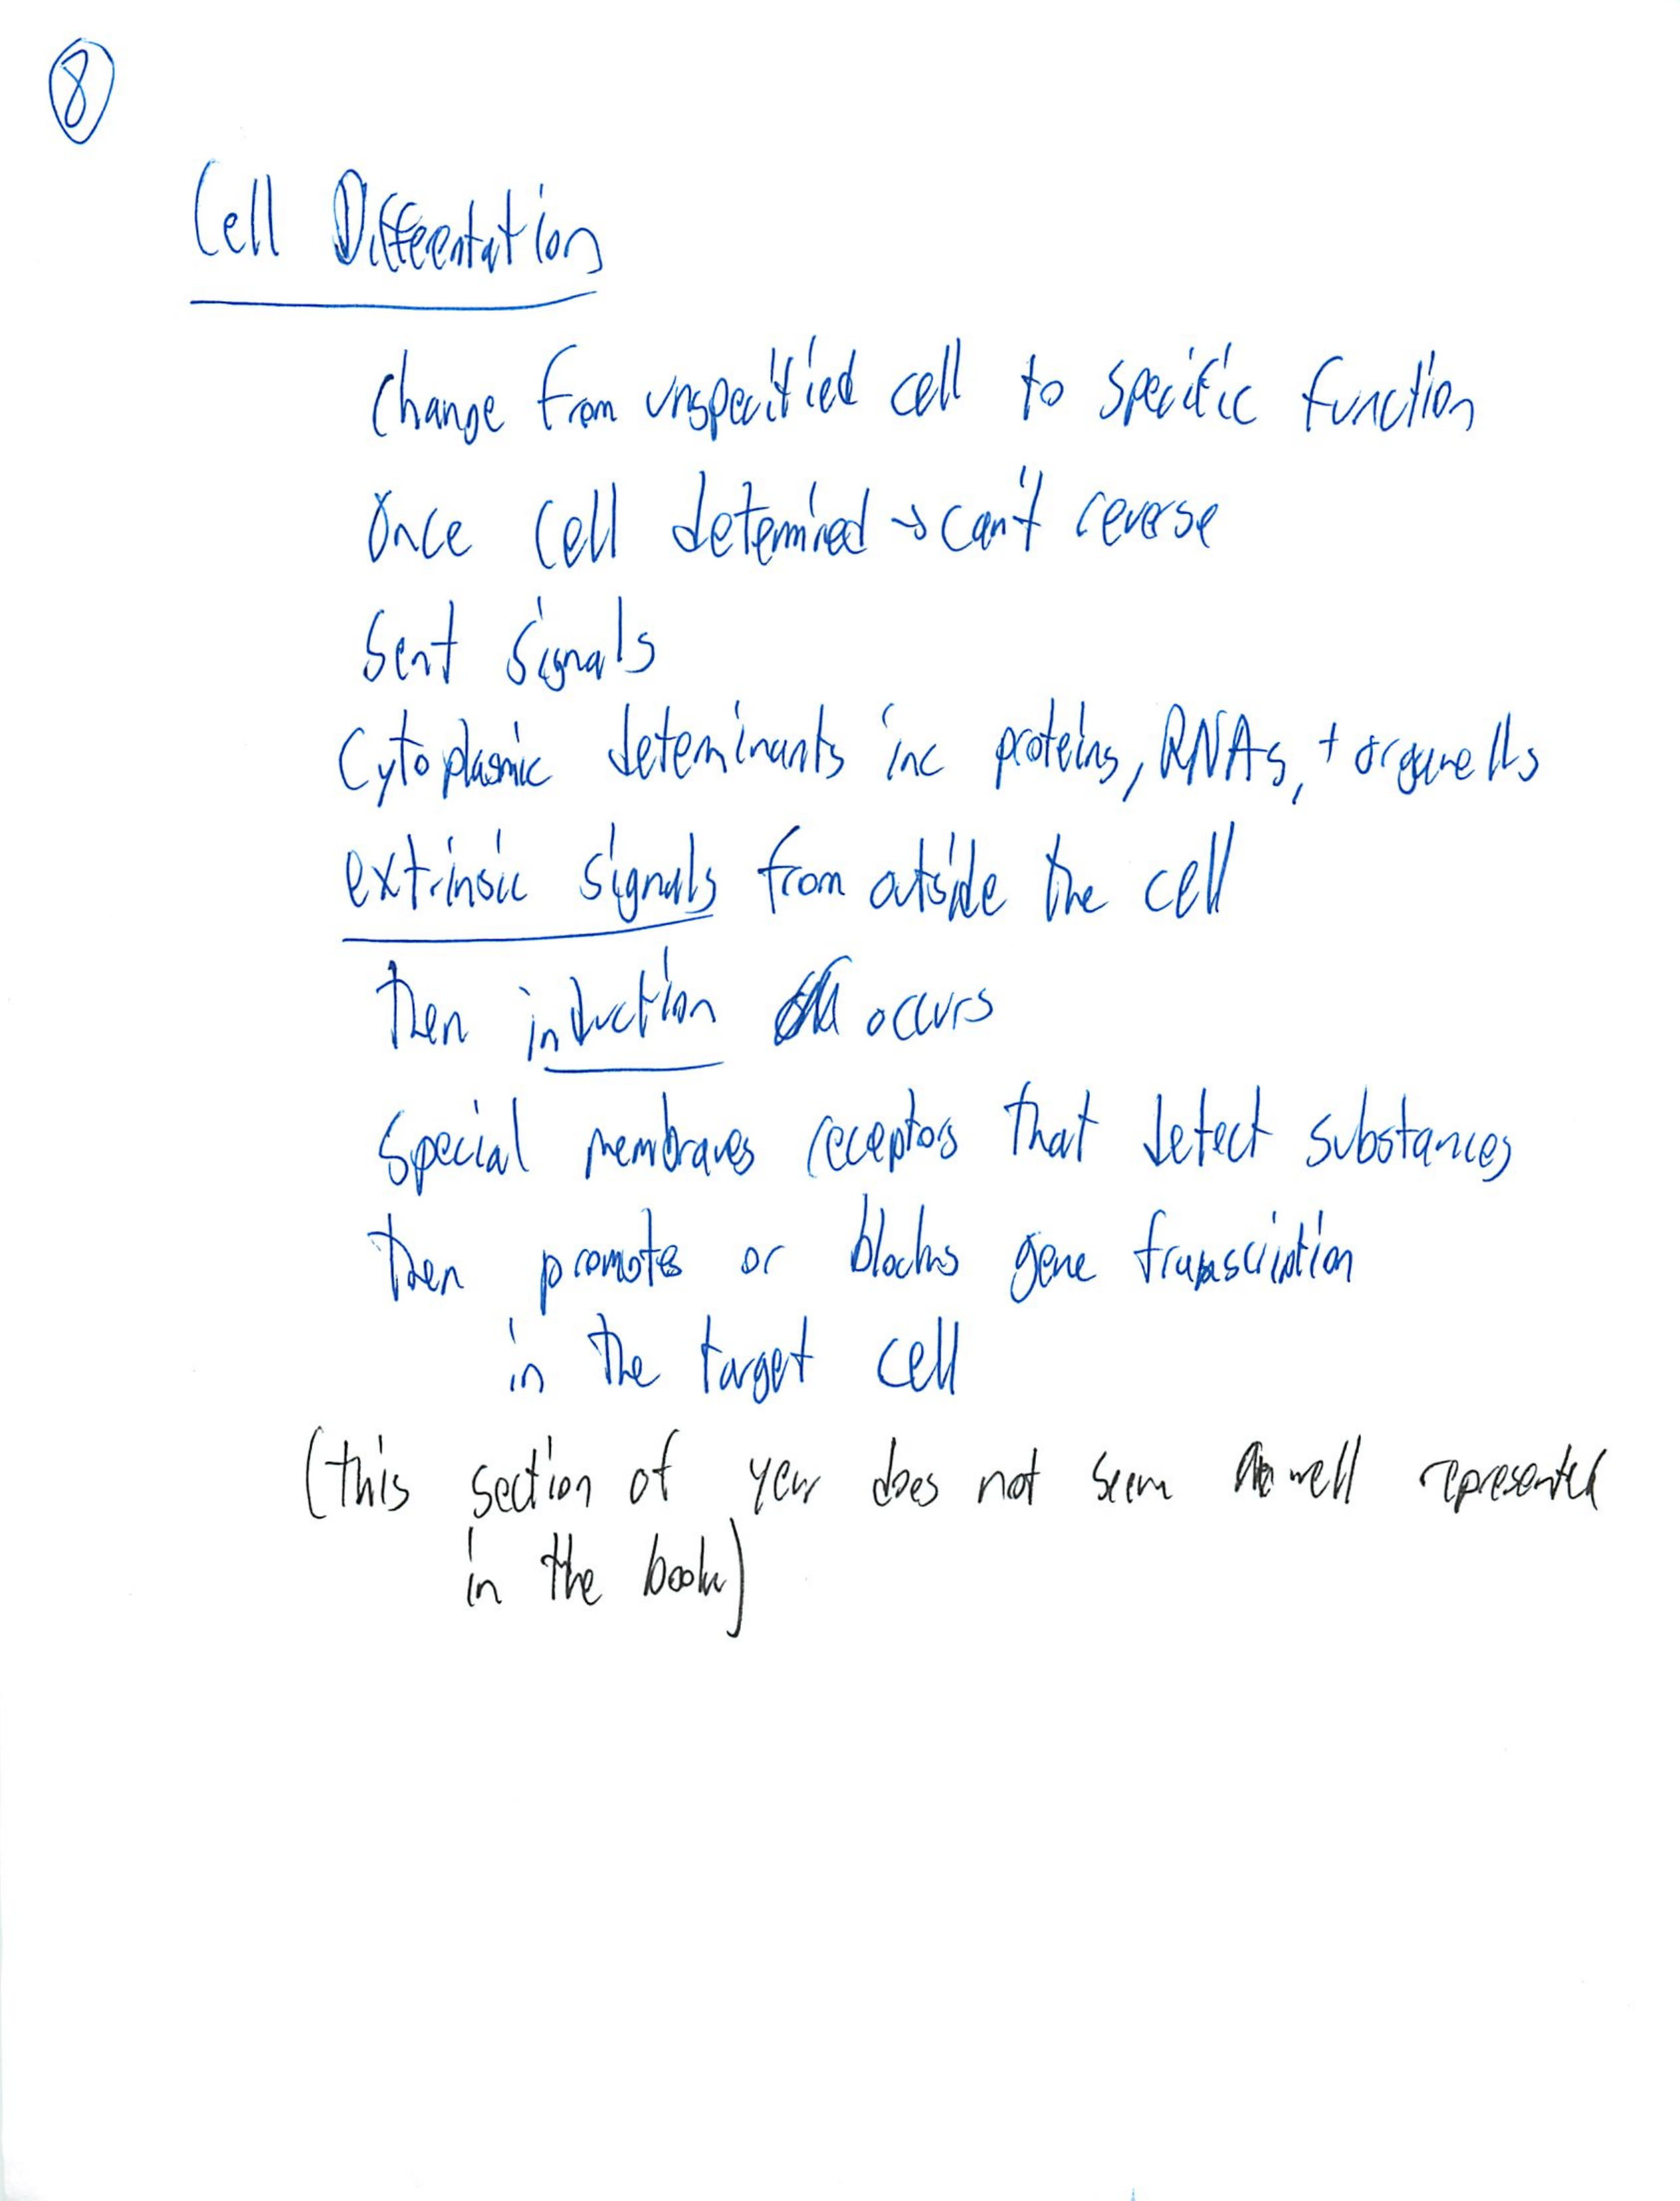 8
Cell Differentation
Change from unspecified cell to specific function
Once cell determined → can't reverse
Sent signals
Cytoplasmic determinants inc proteins, RNAs, + organells
extrinsic signals from outside the cell
Then induction occurs
Special membranes receptors that detect substances
Then promotes or blocks gene transcription
in the target cell
(this section of year does not seem well represented
in the book)